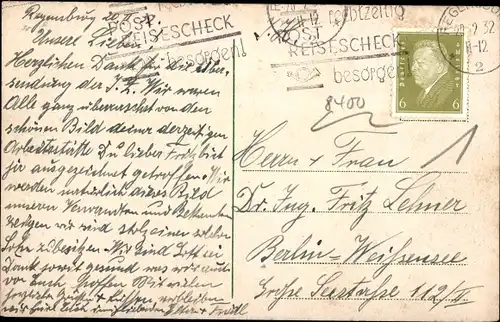 Regensburg 26.
Unsere Lieben,
Herzlichen Dank für die Über-
sendung der I. Z. Wir waren
Alle ganz überrascht von dem
schönen Bild deiner derzeitigen
Arbeitsstätte Du lieber Fritz bist
ja ausgezeichnet getroffen. Wir
werden natürlich dieses Bild
unseren Verwandten und Bekannten
zeigen wir sind stolz einen solchen
Sohn zu besitzen. Wir sind Gott sei
Dank soweit gesund was wir auch
von Euch hoffen Mit vielen
herzlichen Grüßen & Küssen verbleiben
wir
POST
REISESCHECK
besorgen!
rechtzeitig
POST
REISESCHECK
besorgen!
REGENSBURG
2.32
11-12
2
Deutsches Reich
6 6
8400
1
Herrn & Frau
Dr. Ing. Fritz Lehner
Berlin-Weissensee
Große Seestraße 112/II